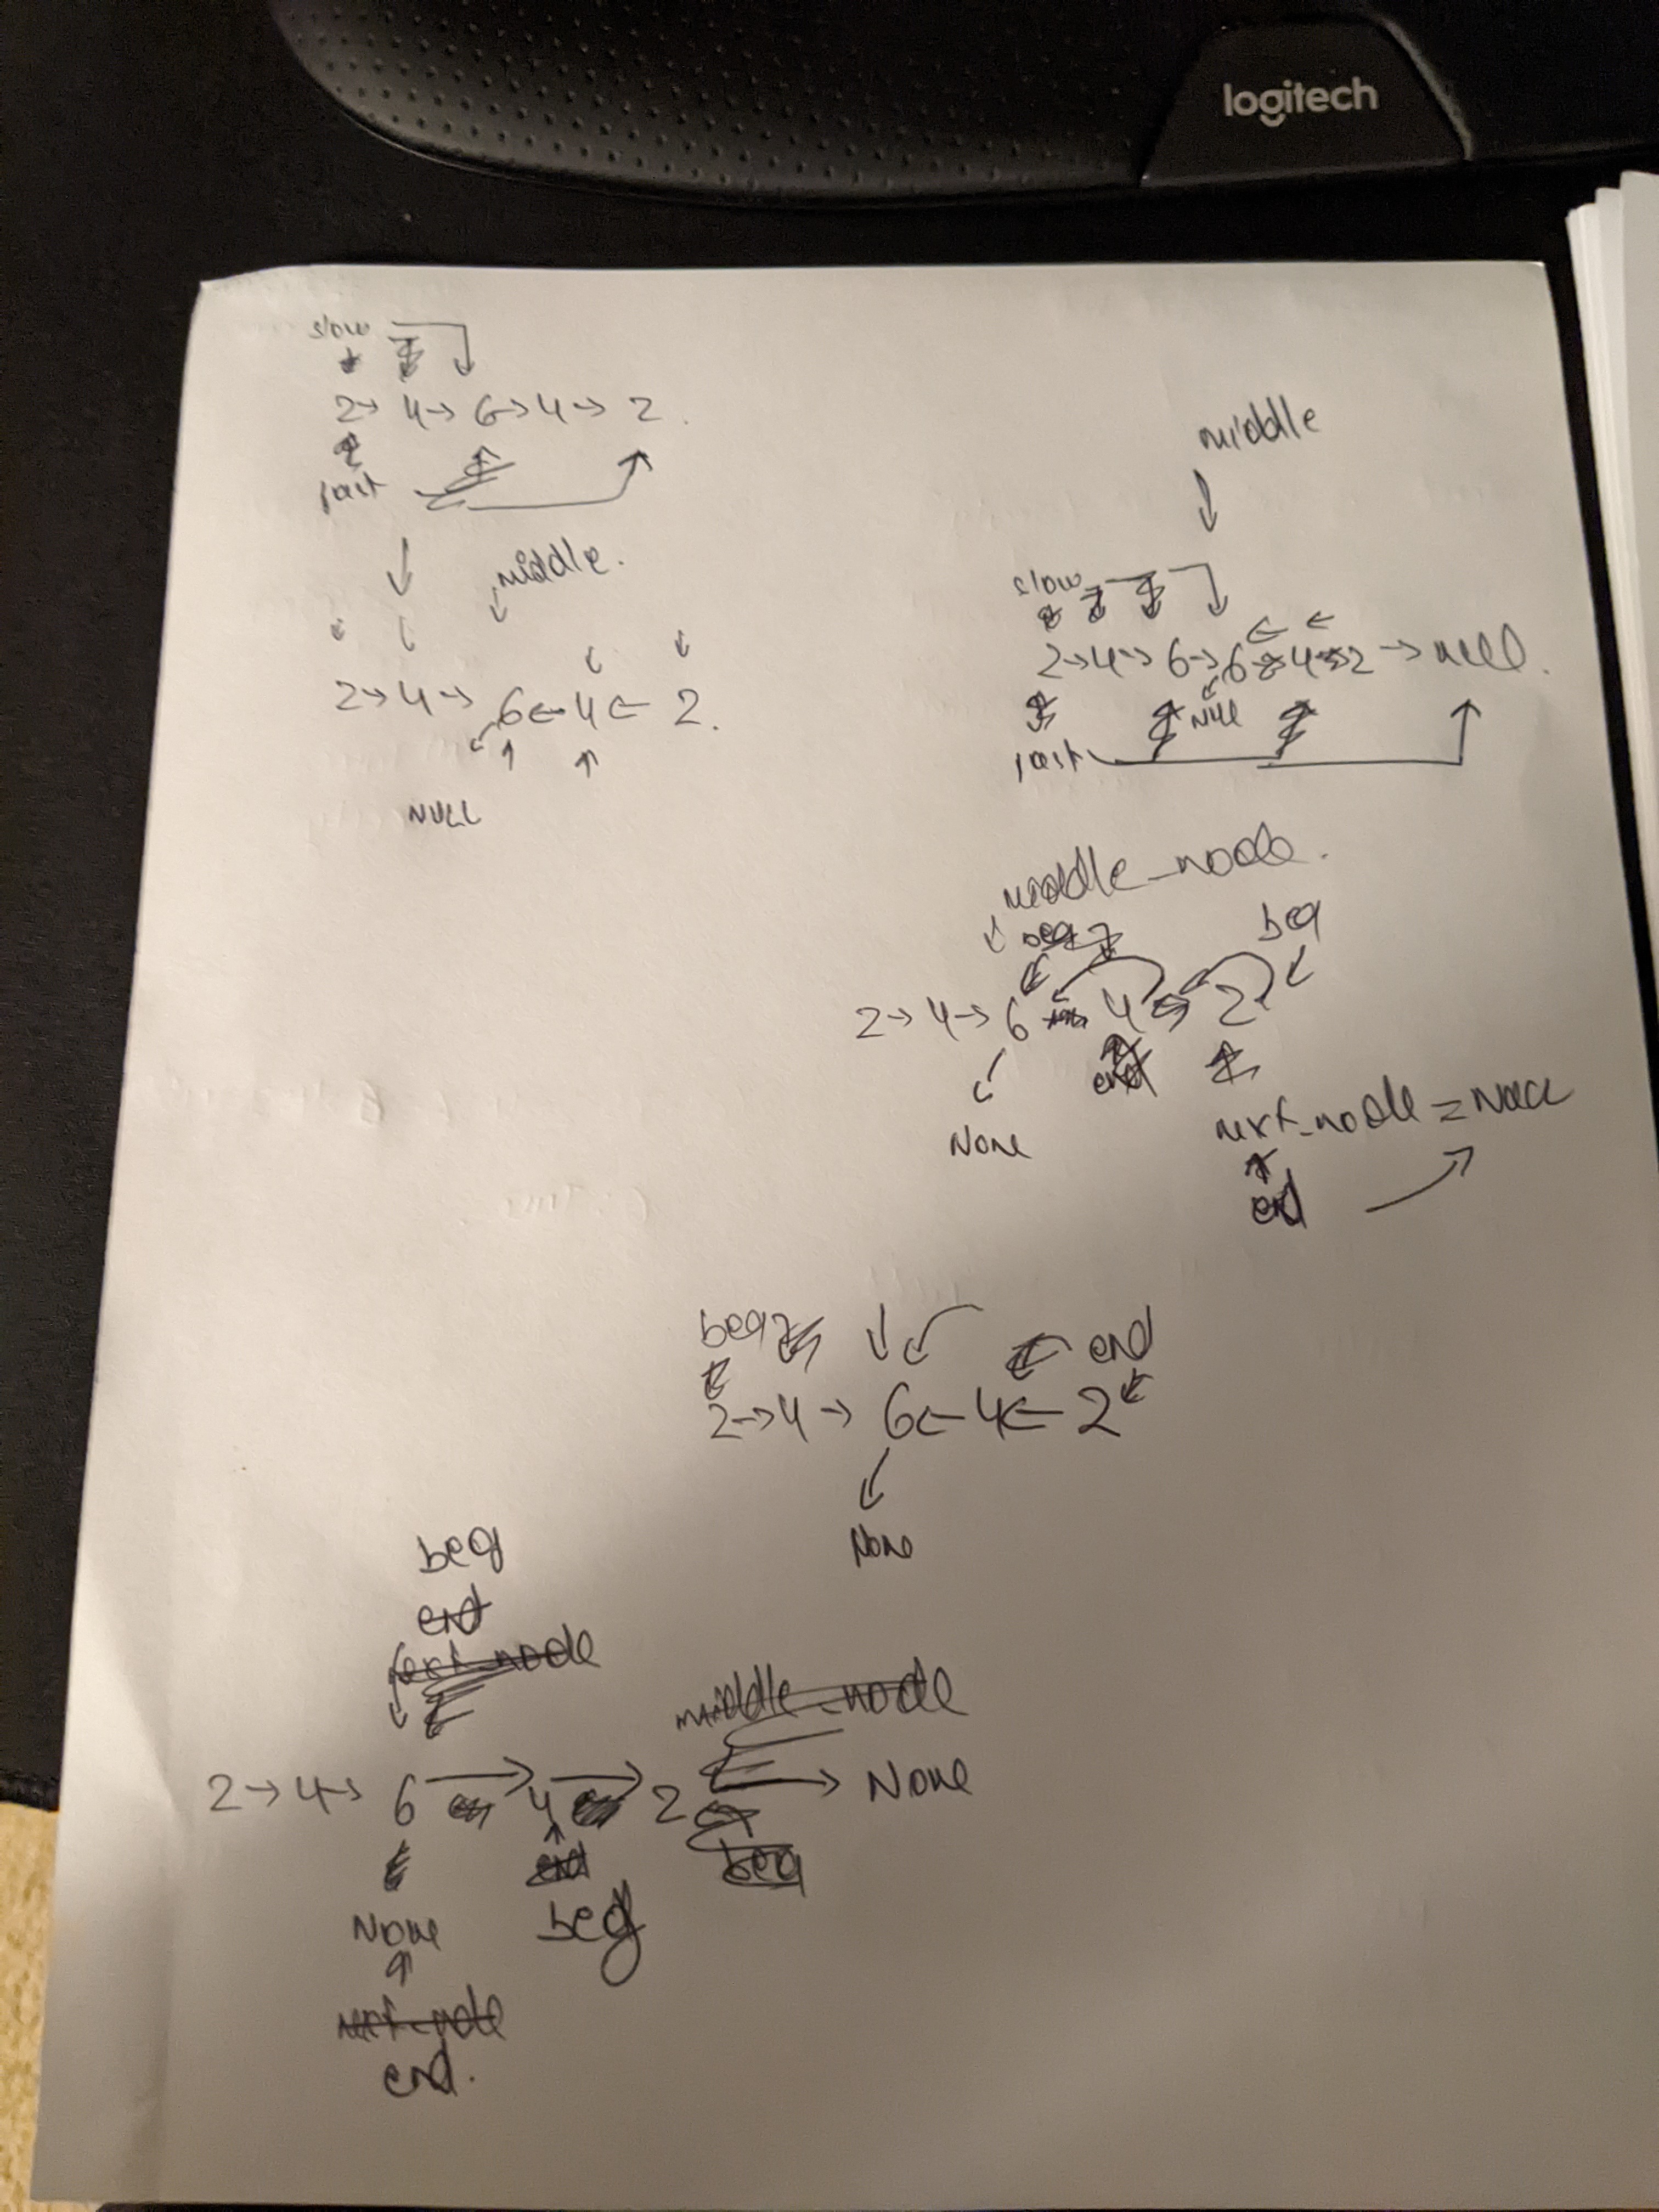 logitech
slow
2→ 4→ 6→ 4→ 2.
fast
↓ middle.
2→ 4→ 6← 4← 2.
NULL
middle
slow
2→4→ 6→6 4 2 → null.
NULL
fast
middle_node.
beg beg
2→ 4→ 6 4 2
end
None
next_node = NULL
end
beg end
2→4→ 6← 4← 2
None
beg
end
next_node
middle_node
2→4→ 6 → 4 → 2 → None
end beg
None beg
next_node
end.